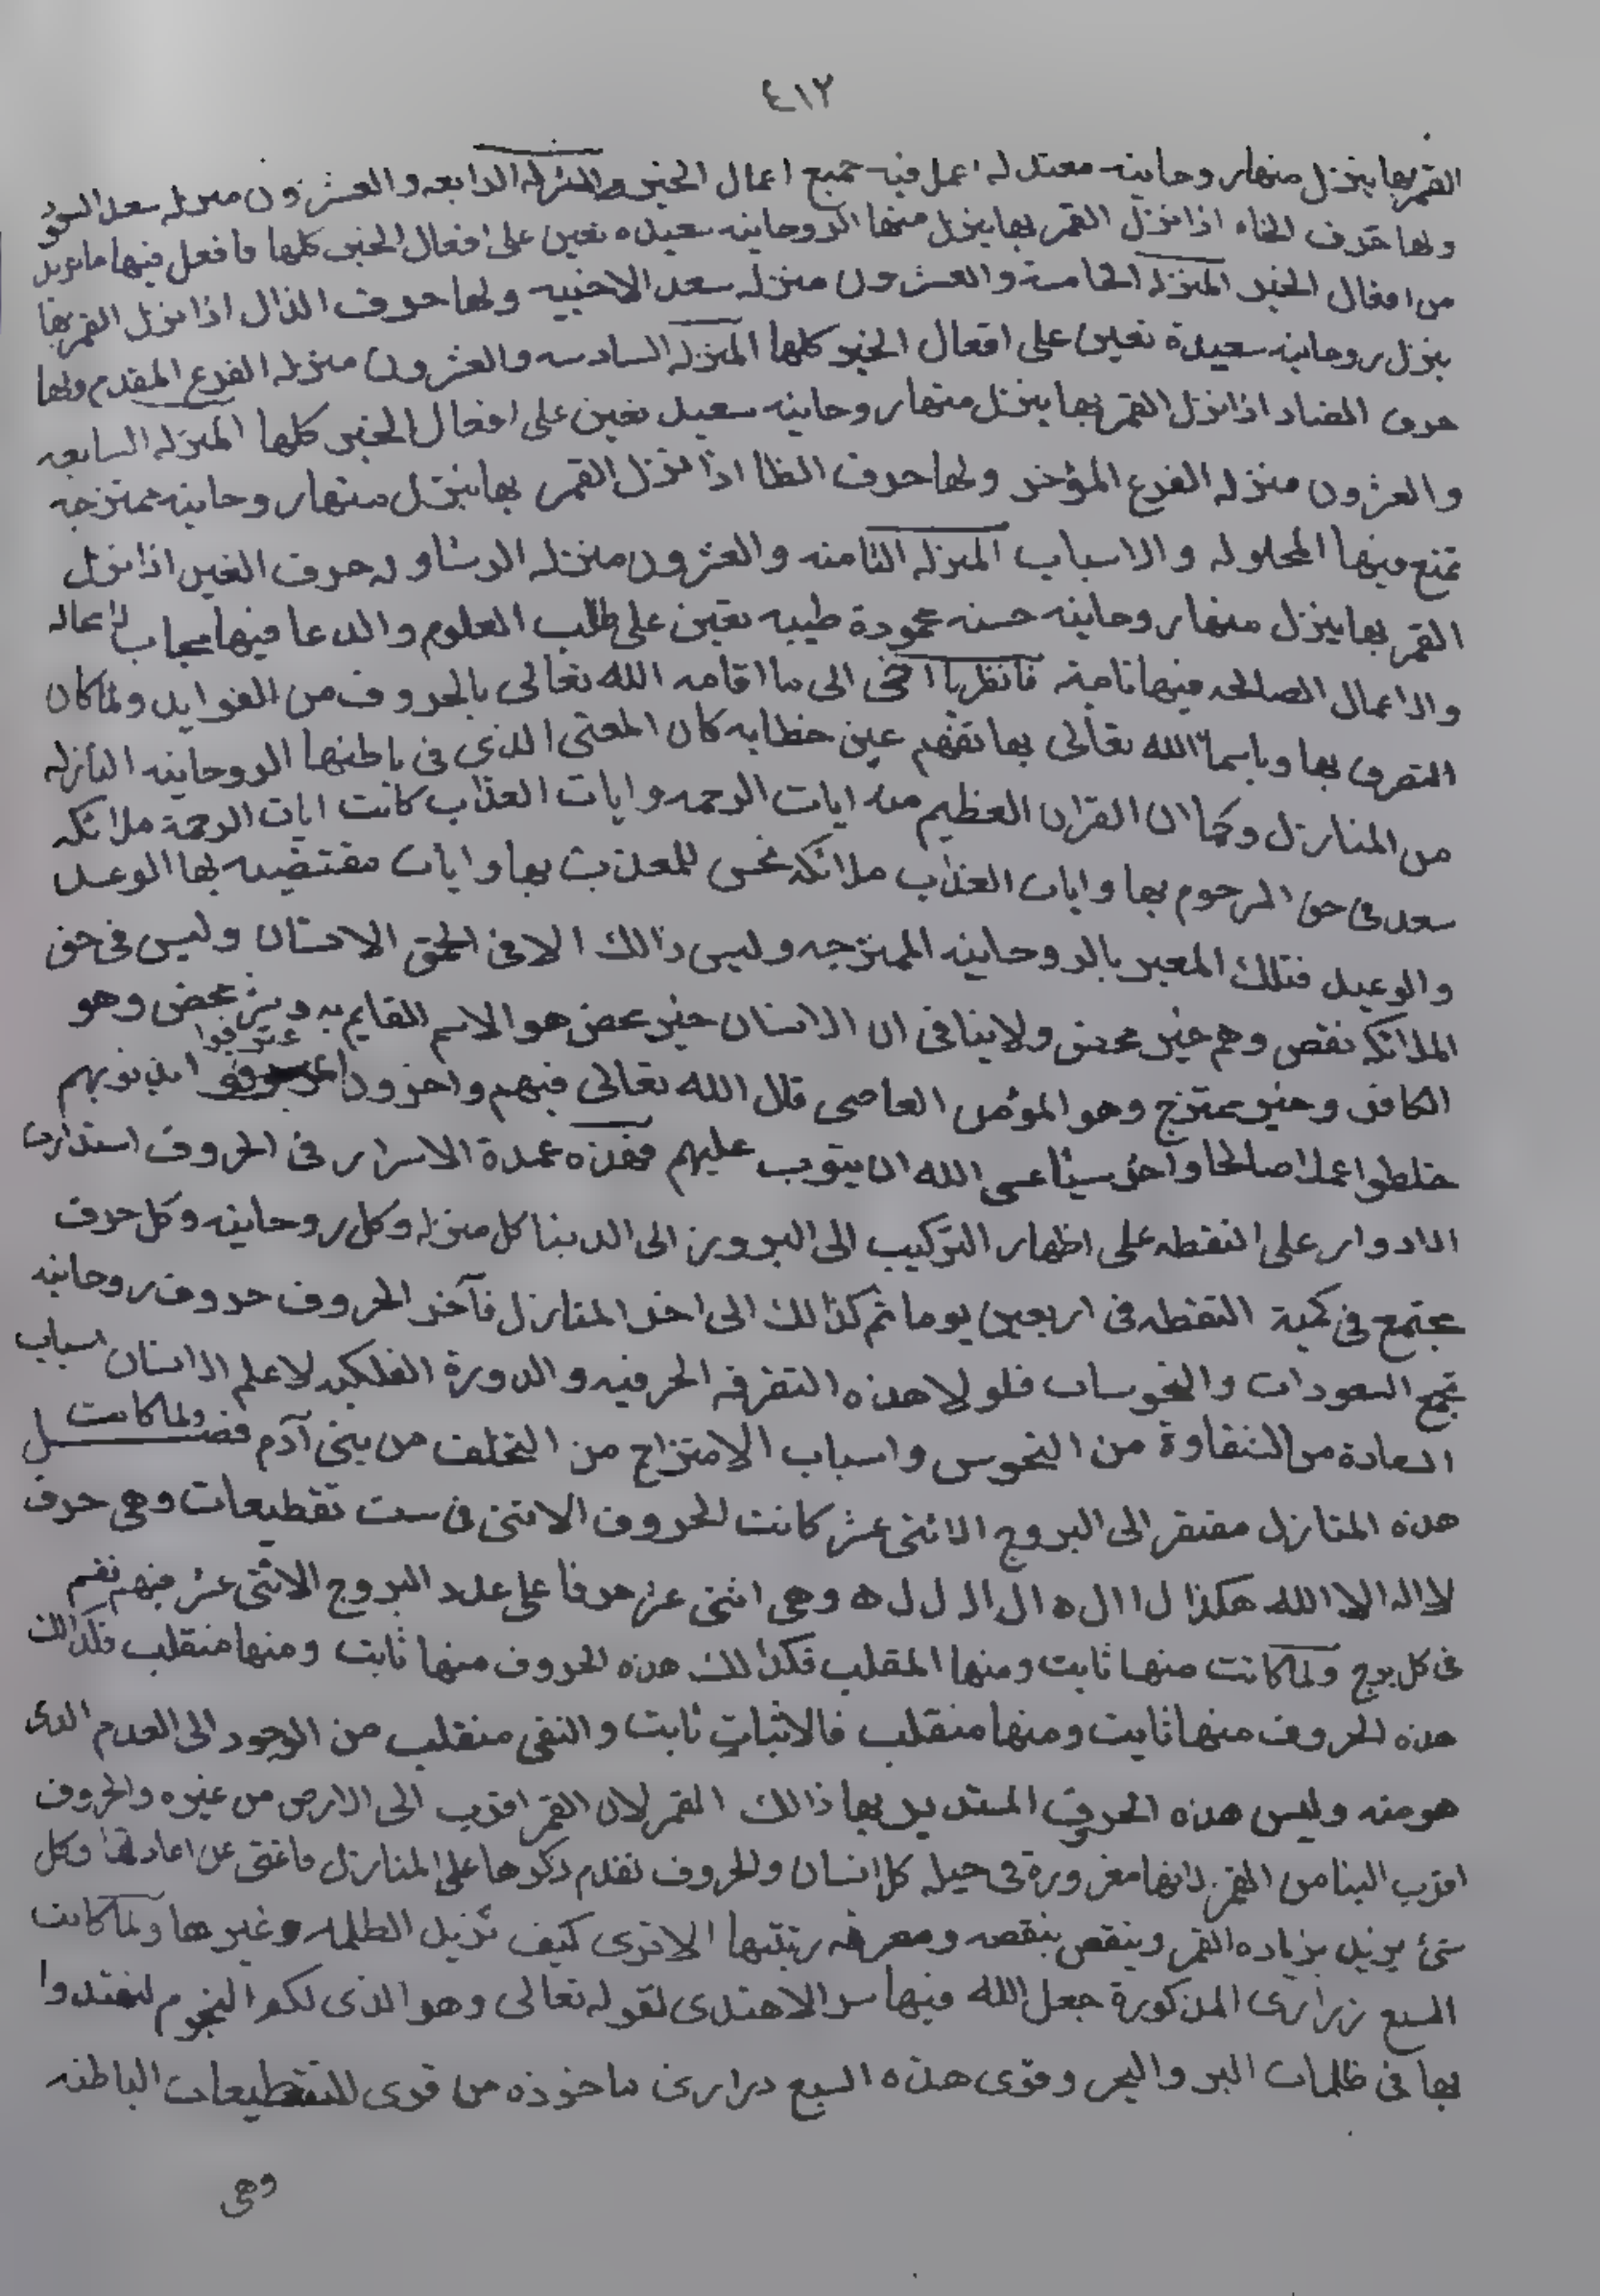 ٤١٢
القمر بها ينزل منها روحانية معتدله اعمل فيه جميع اعمال الخير والمنزله الرابعه والعشرون منزله سعد السعود
ولها حرف الخاء اذا نزل القمر بها ينزل منها الروحانيه سعيده تعين على افعال الخير كلها فافعل فيها ما تريد
من افعال الخير المنزله الخامسة والعشرون منزله سعد الاخبيه ولها حرف الذال اذا نزل القمر بها
ينزل روحانيه سعيدة تعين على افعال الخير كلها المنزله السادسه والعشرون منزله الفرع المقدم ولها
حرف الضاد اذا نزل القمر بها ينزل منها روحانيه سعيد تعين على افعال الخير كلها المنزله السابعه
والعشرون منزله الفرع المؤخر ولها حرف الظا اذا نزل القمر بها ينزل منها روحانيه ممتزجه
تمنع فيها المحلوله والاسباب المنزله الثامنه والعشرون منزله الرشا وله حرف الغين اذا نزل
القمر بها ينزل منها روحانيه حسنه محمودة طيبه تعين على طلب العلوم والدعا فيها مجاب لا محاله
والاعمال الصالحه فيها تامة فانظر يا اخى الى ما اقامه الله تعالى بالحروف من الفوايد ولما كان
التصرف بها وباسما الله تعالى بها تفهم عين خطابه كان المعنى الذى فى باطنها الروحانيه النازله
من المنازل وكما ان القران العظيم منه ايات الرحمه وايات العذاب كانت ايات الرحمة ملائكه
سعد فى حق المرحوم بها وايات العذاب ملائكه نحس للمعذب بها وايات مقتضيه بها الوعد
والوعيد فتلك المعبر بالروحانيه الممتزجه وليس ذالك الا فى الحق الانسان وليس فى حق
الملائكه نقص وهم خير محض ولا ينافى ان الانسان خير محض هو الاسم القايم به وشر محض وهو
الكافر وخير ممتزج وهو المؤمن العاصى قال الله تعالى فيهم واخرون اعترفوا بذنوبهم
خلطوا عملا صالحا واخر سيئا عسى الله ان يتوب عليهم فهذه عمدة الاسرار فى الحروف استدارت
الادوار على النقطه على اظهار التركيب الى البروز الى الدينا كل منزله وكل روحانيه وكل حرف
مجتمع فى كمية النقطه فى اربعين يوما ثم كذالك الى اخر المنازل فآخر الحروف حروف روحانيه
تجمع السعودات والنحوسات فلولا هذه التفرقه الحرفيه والدورة الفلكيه لا علم الانسان اسباب
السعادة من الشقاوة من النحوس واسباب الامتزاج من التخلف من بنى آدم فصل ولما كانت
هذه المنازل مفتقر الى البروج الاثنى عشر كانت الحروف الاثنى فى ست تقطيعات وهى حرف
لا اله الا الله هكذا ل ا ا ل ه ا ل ا ا ل ل ه وهى اثنى عشر حرفا على عدد البروج الاثنى عشر فيهم نقسم
فى كل برج ولما كانت منها ثابت ومنها المقلب فكذالك هذه الحروف منها ثابت ومنها منقلب فكذالك
هذه الحروف منها ثابت ومنها منقلب فالاثبات ثابت والنفى منقلب من الوجود الى العدم الذى
هو منه وليس هذه الحروف المستدير بها ذالك القمر لان القمر اقرب الى الارض من غيره والحروف
اقرب الينا من القمر لانها مغروزة فى حيله كل انسان والحروف تقدم ذكرها على المنازل فاغنى عن اعادتها وكل
شئ يزيد بزياده القمر وينقص بنقصه ومعرفه رتبتها الا ترى كيف تزيل الظلمه وغيرها ولما كانت
السبع زرارى المذكورة جعل الله فيها سر الاهتدى لقوله تعالى وهو الذى لكم النجوم لتهتدوا
بها فى ظلمات البر والبحر وقوى هذه السبع درارى ماخوذه من قوى للتقطيعات الباطنه
وهى